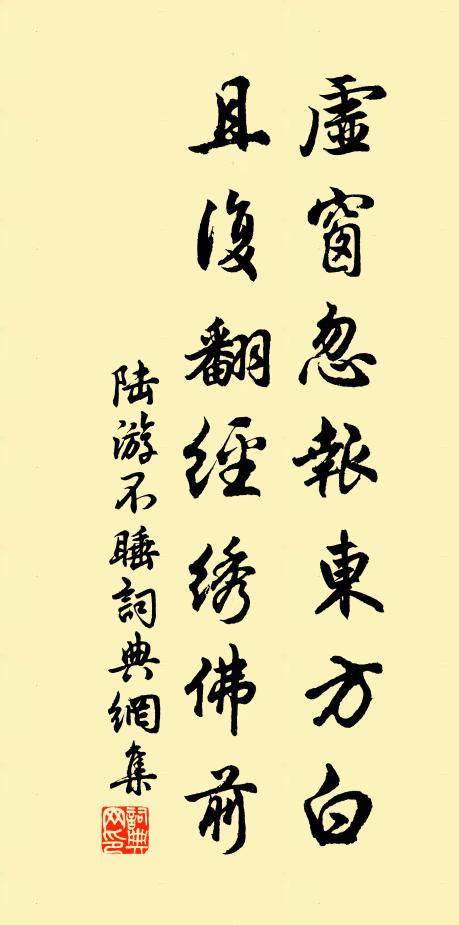 虛窗忽報東方白
且復翻經綉佛前
陸游不睡詞典網集
詞典網印